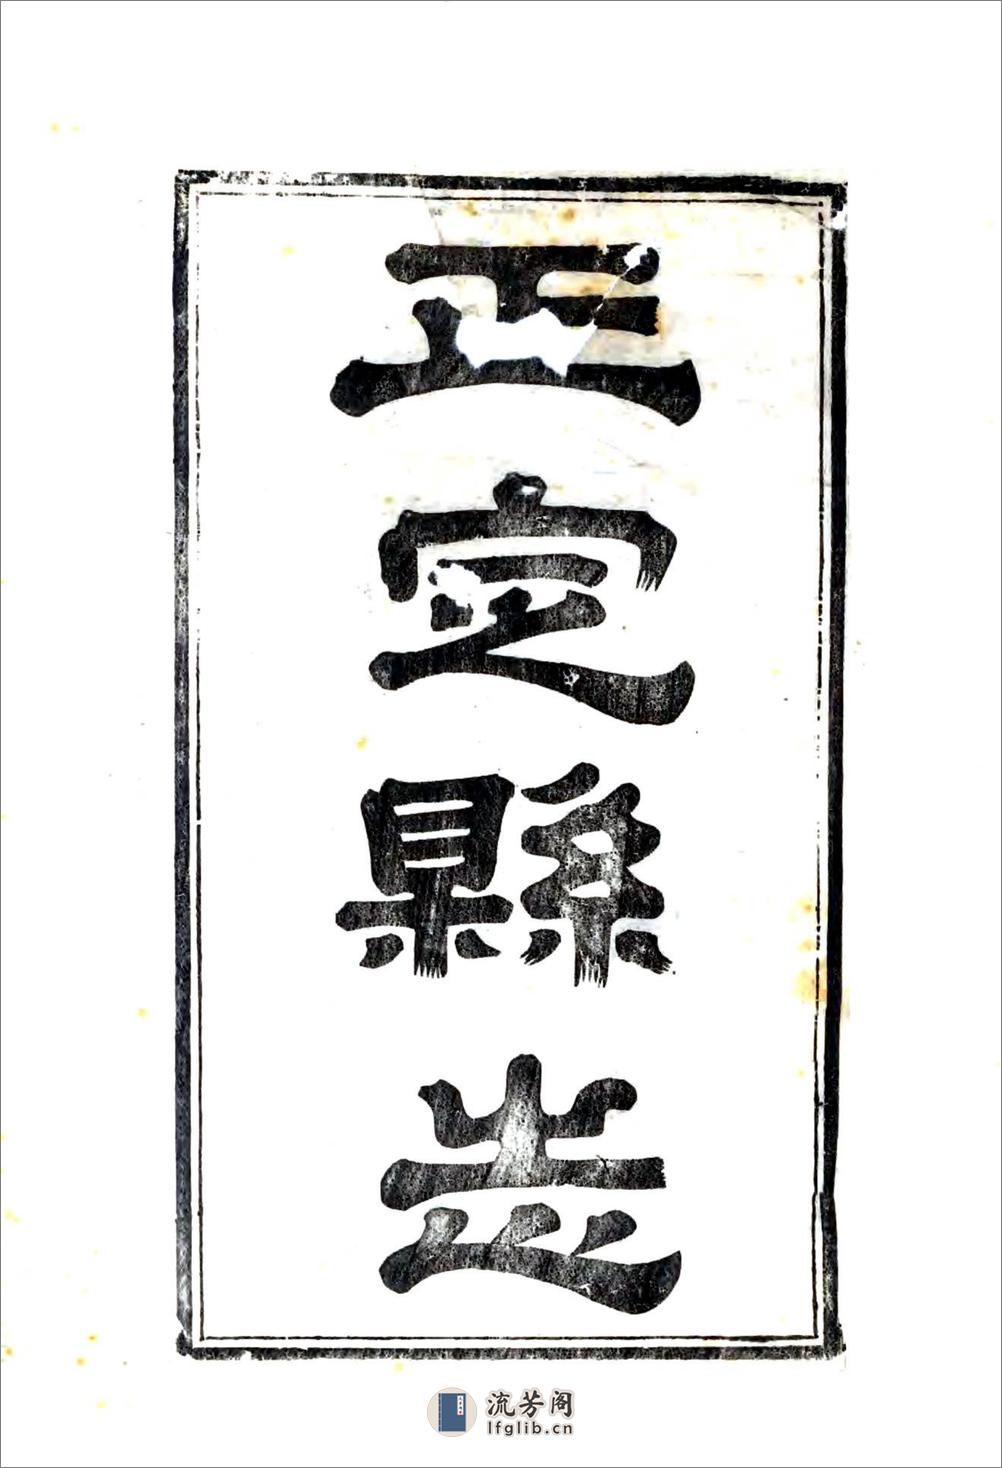 正定縣志
流芳阁
lfglib.cn